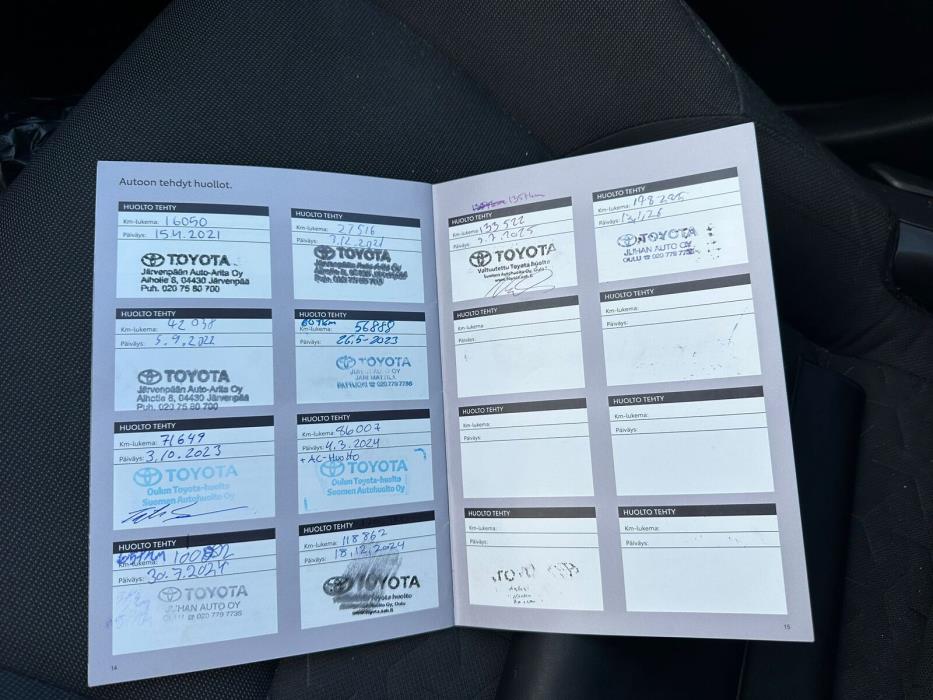 Autoon tehdyt huollot.
HUOLTO TEHTY
Km-lukema: 16050
Päiväys: 15.4.2021
TOYOTA
Järvenpään Auto-Arita Oy
Alhotie 8, 04430 Järvenpää
Puh. 020 75 80 700
HUOLTO TEHTY
Km-lukema: 27516
Päiväys:
TOYOTA
Järvenpään Auto-Arita Oy
Alhotie 8, 04430 Järvenpää
Puh. 020 75 80 700
HUOLTO TEHTY
Km-lukema: 42038
Päiväys: 5.9.2022
TOYOTA
Järvenpään Auto-Arita Oy
Alhotie 8, 04430 Järvenpää
Puh. 020 75 80 700
HUOLTO TEHTY
Km-lukema: 56888
Päiväys: 26.5-2023
TOYOTA
020 779 7736
HUOLTO TEHTY
Km-lukema: 71649
Päiväys: 3.10.2023
TOYOTA
Oulun Toyota-huolto
Suomen Autohuolto Oy
HUOLTO TEHTY
Km-lukema: 86007
Päiväys: 4.3.2024
+ AC-Huolto
TOYOTA
Oulun Toyota-huolto
Suomen Autohuolto Oy
HUOLTO TEHTY
Päiväys: 30.7.2024
TOYOTA
JUHAN AUTO OY
OULU ☎ 020 779 7736
HUOLTO TEHTY
Km-lukema: 118862
Päiväys: 18.12.2024
TOYOTA
Toyota huolto
Oy, Oulu
14
135Tkm
HUOLTO TEHTY
Km-lukema: 133522
Päiväys: 3.7.2025
TOYOTA
Valtuutettu Toyota huolto
Suomen Autohuolto Oy, Oulu
HUOLTO TEHTY
Km-lukema:
Päiväys:
TOYOTA
JUHAN AUTO OY
OULU ☎ 020 779 7736
HUOLTO TEHTY
Km-lukema:
Päiväys:
HUOLTO TEHTY
Km-lukema:
Päiväys:
HUOLTO TEHTY
Km-lukema:
Päiväys:
HUOLTO TEHTY
Km-lukema:
Päiväys:
HUOLTO TEHTY
Km-lukema:
Päiväys:
HUOLTO TEHTY
Km-lukema:
Päiväys:
15